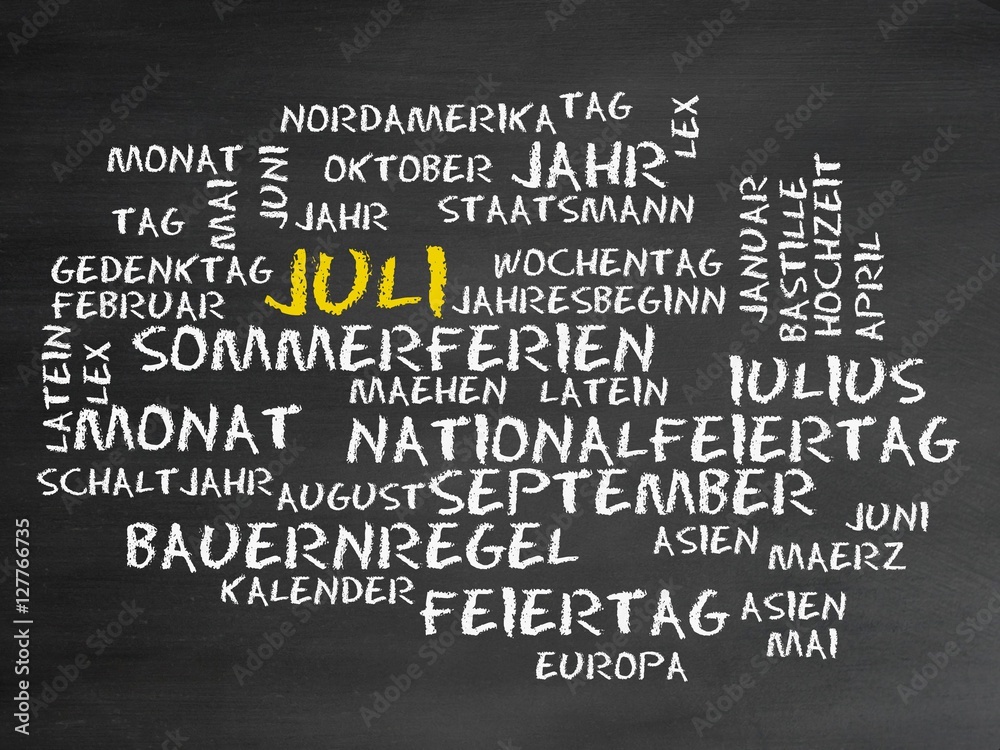 NORDAMERIKA TAG
LEX
MONAT
JUNI
OKTOBER
JAHR
MAI
TAG
JAHR
STAATSMANN
JANUAR
BASTILLE
HOCHZEIT
APRIL
GEDENKTAG
JULI
WOCHENTAG
FEBRUAR
JAHRESBEGINN
LATEIN
LEX
SOMMERFERIEN
MAEHEN
LATEIN
IULIUS
MONAT
NATIONALFEIERTAG
SCHALTJAHR
AUGUST
SEPTEMBER
BAUERNREGEL
ASIEN
JUNI
MAERZ
KALENDER
FEIERTAG
ASIEN
MAI
EUROPA
Adobe Stock | #127766735
Adobe Stock